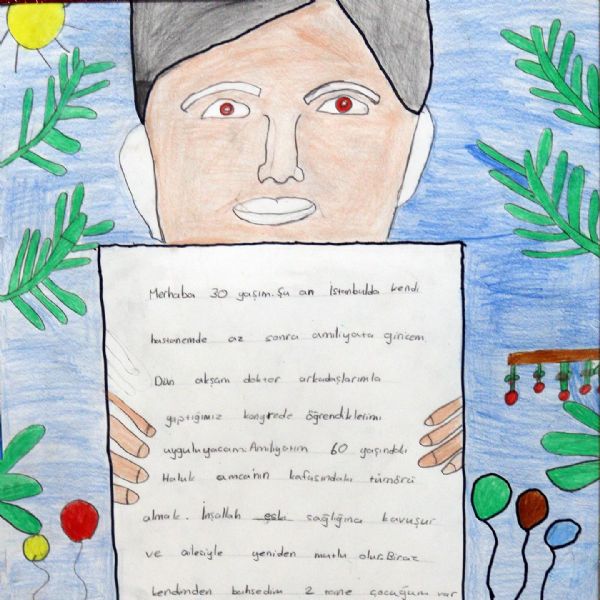 Merhaba 30 yaşım. Şu an İstanbulda kendi
hastanemde az sonra amiliyata giricem.
Dün akşam doktor arkadaşlarımla
yaptığımız kongrede öğrendiklerimi
uyguluyacam. Amiliyatım 60 yaşındaki
Haluk amca'nın kafasındaki tümörü
almak. İnşallah eski sağlığına kavuşur
ve ailesiyle yeniden mutlu olur. Biraz
kendimden bahsedim 2 tane çocuğum var